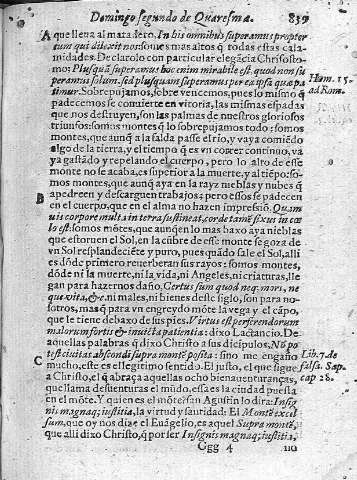 Domingo segundo de Quaresma. 839
A que lleua al matadero. In his omnibus superamus propter
eum qui dilexit nos somos mas altos q̃ todas estas cala-
midades. Declarolo con particular elegãcia Chrisosto-
mo: Plusquã superamus hoc enim mirabile est, quod non su
peramus solum, sed plusquam superamus per ea ipsa quæ pa
timur. Sobrepujamos, sobre vencemos, pues lo mismo q̃
padecemos se conuierte en vitoria, las mismas espadas
que nos destruyen, son las palmas de nuestros gloriosos
triunfos: somos montes q̃ lo sobrepujamos todo: somos
montes, que aunq̃ a la falda passe el rio, y vaya comiẽdo
algo de la tierra, y el tiempo q̃ es vn correr continuo, va
ya gastãdo y repelando el cuerpo, pero lo alto de esse
monte no se acaba, es superior a la muerte, y al tiẽpo: so-
mos montes, que aunq̃ aya en la rayz nieblas y nubes q̃
B apedreen y descarguen trabajos, pero essos se padecen
en el cuerpo, que en el alma no hazen impressiõ. Quam
uis corpore multa in terra sustineat, corde tamẽ fixus in cœ
lo est: somos mõtes, que aunq̃ en lo mas baxo aya nieblas
que estoruen el Sol, en la cũbre de esse monte se goza de
vn Sol resplandeciẽte y puro, pues quãdo sale el Sol, alli
es dõde primero reuerberan sus rayos: somos montes,
dõde ni la muerte, ni la vida, ni Angeles, ni criaturas, lle-
gan para hazernos daño. Certus sum quod neq; mors, ne
que vita, &c. ni males, ni bienes deste siglo, son para no-
sotros, mas q̃ para vn engreydo mõte la vega y el cãpo,
que le tiene debaxo de sus pies. Virtus est perferendorum
malorum fortis & inuicta patientia: dixo Lactancio. De
aquellas palabras q̃ dixo Christo a sus dicipulos. Nõ po
test ciuitas abscondi supra montẽ posita: sino me engaño
C mucho, este es el legitimo sentido. El justo, el que sigue
a Christo, el q̃ abraça aquellas ocho bienauenturanças,
que llama desuenturas el mũdo, essa es la ciudad puesta
en el mõte. Y quien es el mõte? san Agustin lo dira: Insig
nis magnaq; iustitia, la virtud y santidad: El Montẽ excel
sum, que oy nos dize el Euãgelio, es aquel Supra montẽ,
que alli dixo Christo, q̃ por ser Insignis magnaq; iustitia,
Ggg 4 no
Hom. 15.
ad Rom.
Lib. 7. de
falsa. Sap.
cap 28.